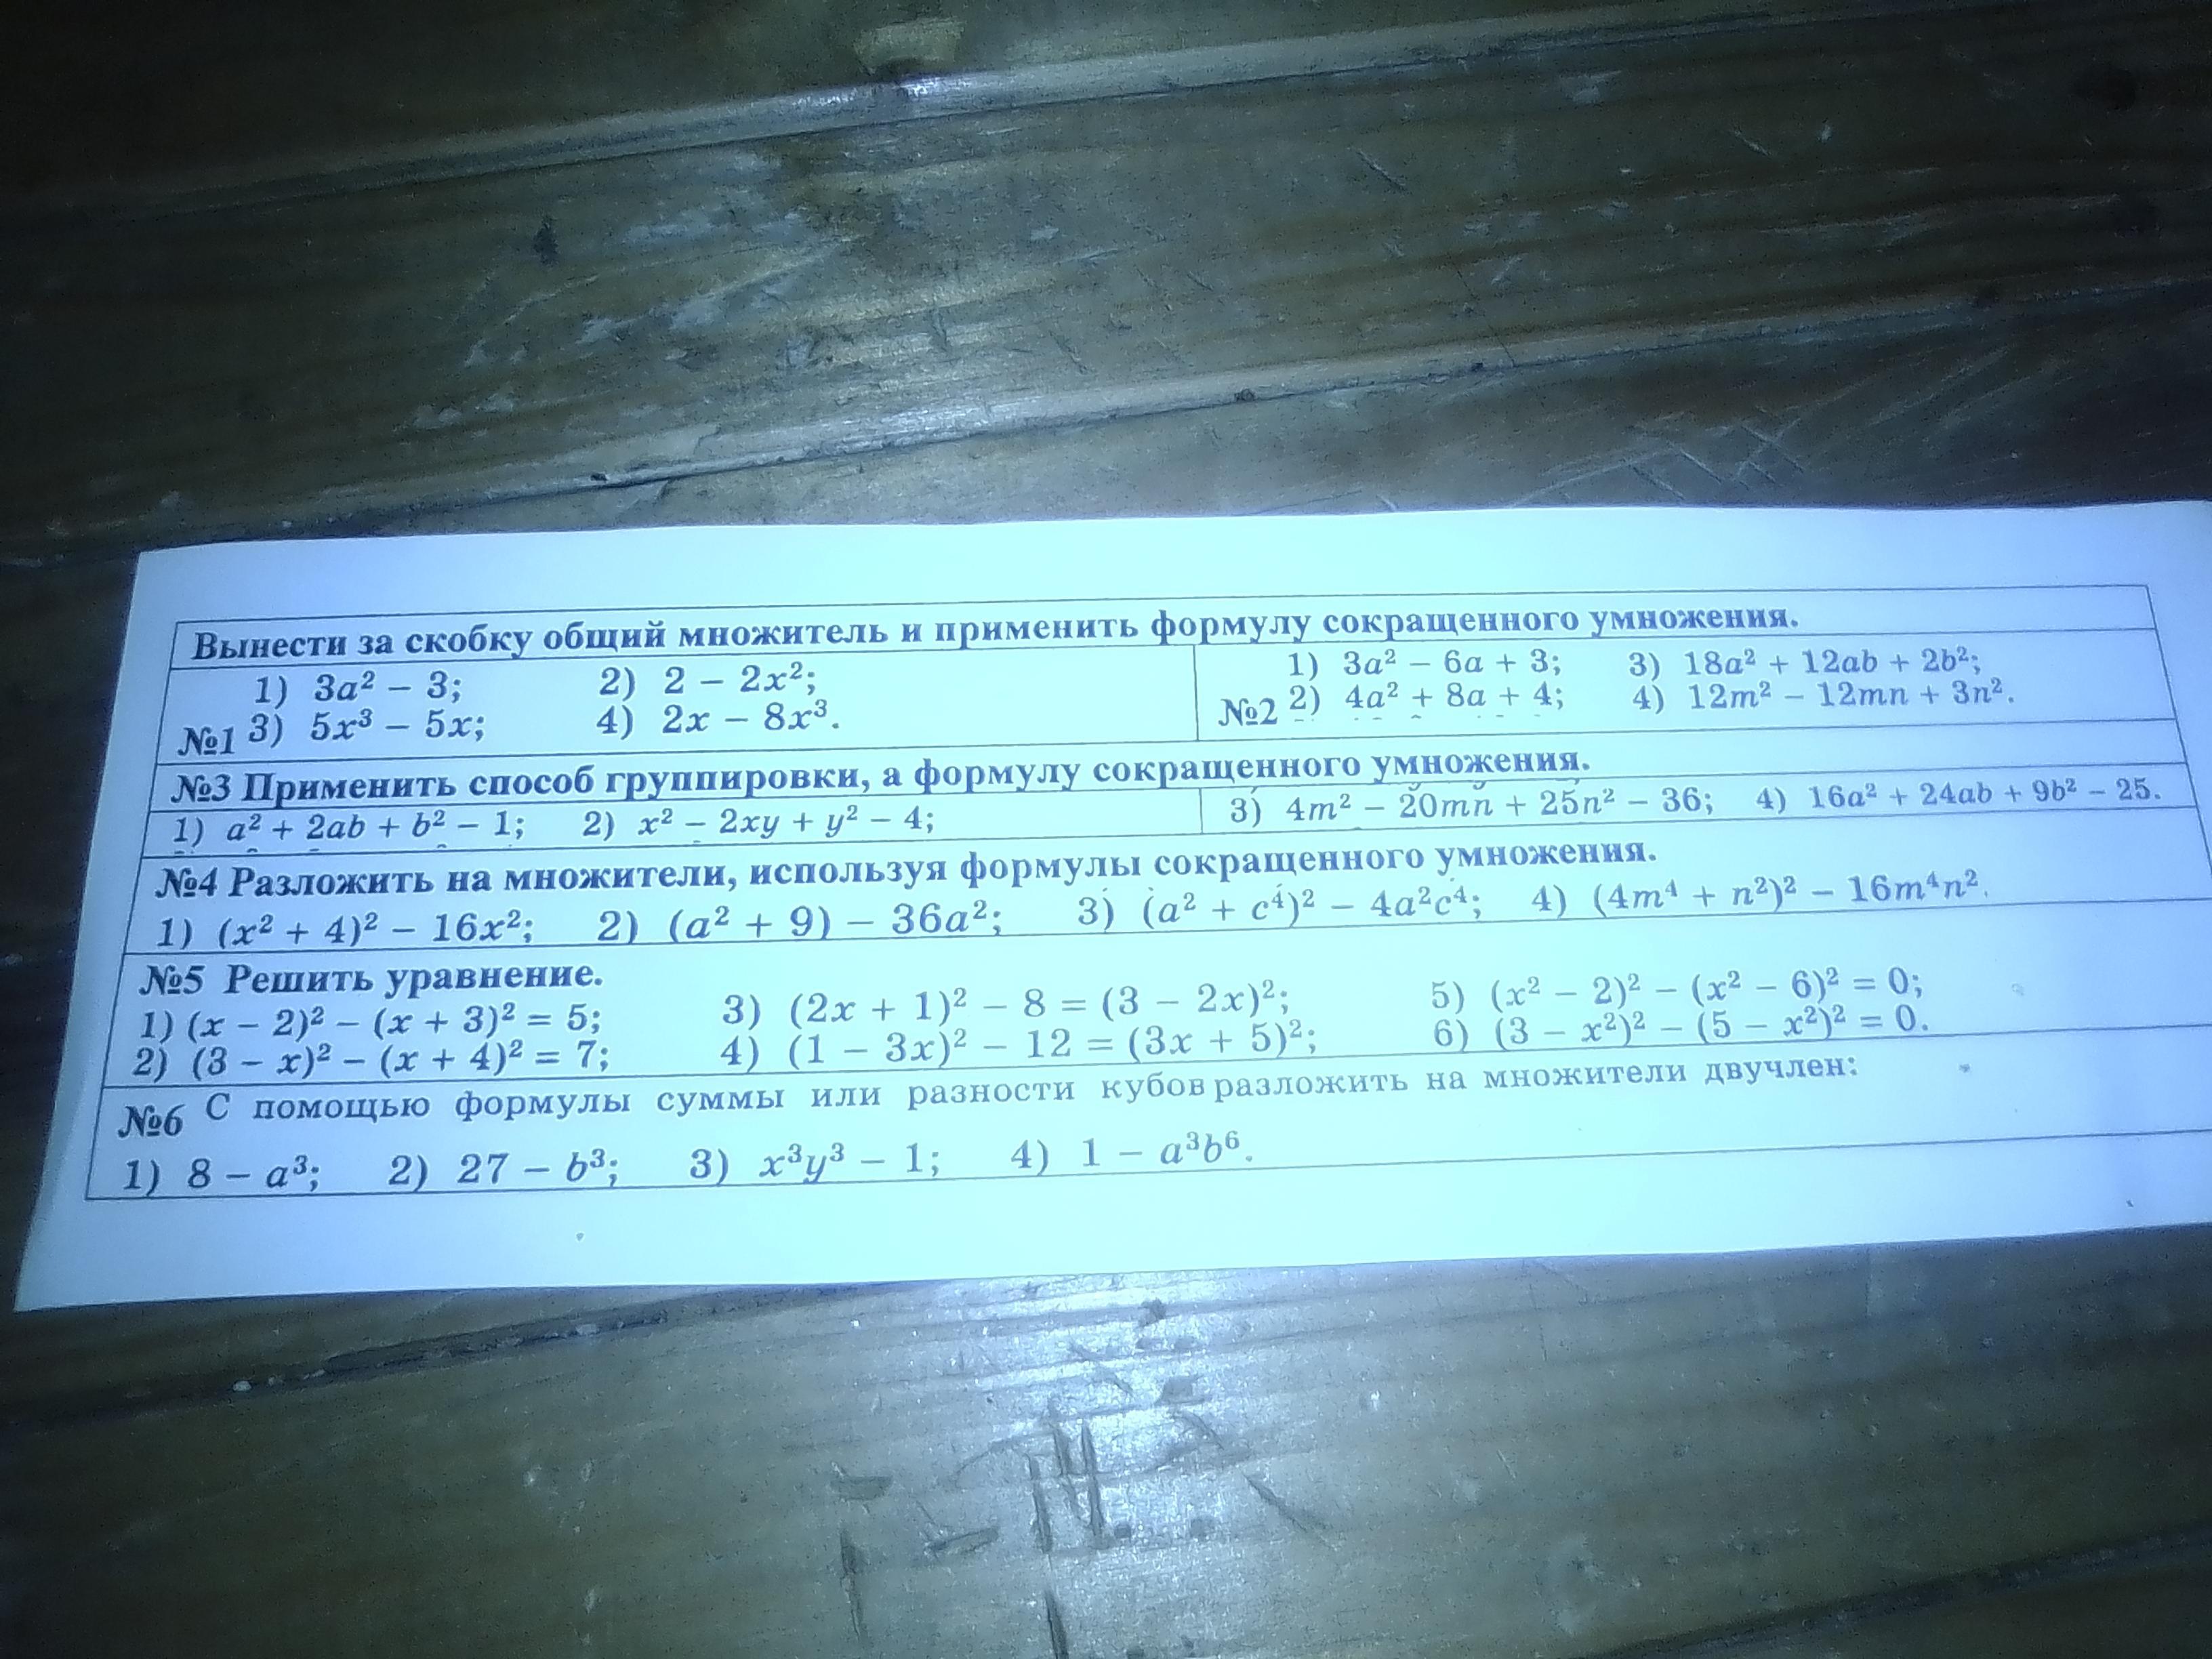 Вынести за скобку общий множитель и применить формулу сокращенного умножения.
№1
1) 3a² − 3; 2) 2 − 2x²;
3) 5x³ − 5x; 4) 2x − 8x³.
№2
1) 3a² − 6a + 3; 3) 18a² + 12ab + 2b²;
2) 4a² + 8a + 4; 4) 12m² − 12mn + 3n².
№3 Применить способ группировки, а формулу сокращенного умножения.
1) a² + 2ab + b² − 1; 2) x² − 2xy + y² − 4;
3) 4m² − 20mn + 25n² − 36; 4) 16a² + 24ab + 9b² − 25.
№4 Разложить на множители, используя формулы сокращенного умножения.
1) (x² + 4)² − 16x²; 2) (a² + 9) − 36a²; 3) (a² + c⁴)² − 4a²c⁴; 4) (4m⁴ + n²)² − 16m⁴n².
№5 Решить уравнение.
1) (x − 2)² − (x + 3)² = 5; 3) (2x + 1)² − 8 = (3 − 2x)²; 5) (x² − 2)² − (x² − 6)² = 0;
2) (3 − x)² − (x + 4)² = 7; 4) (1 − 3x)² − 12 = (3x + 5)²; 6) (3 − x²)² − (5 − x²)² = 0.
№6 С помощью формулы суммы или разности кубов разложить на множители двучлен:
1) 8 − a³; 2) 27 − b³; 3) x³y³ − 1; 4) 1 − a³b⁶.